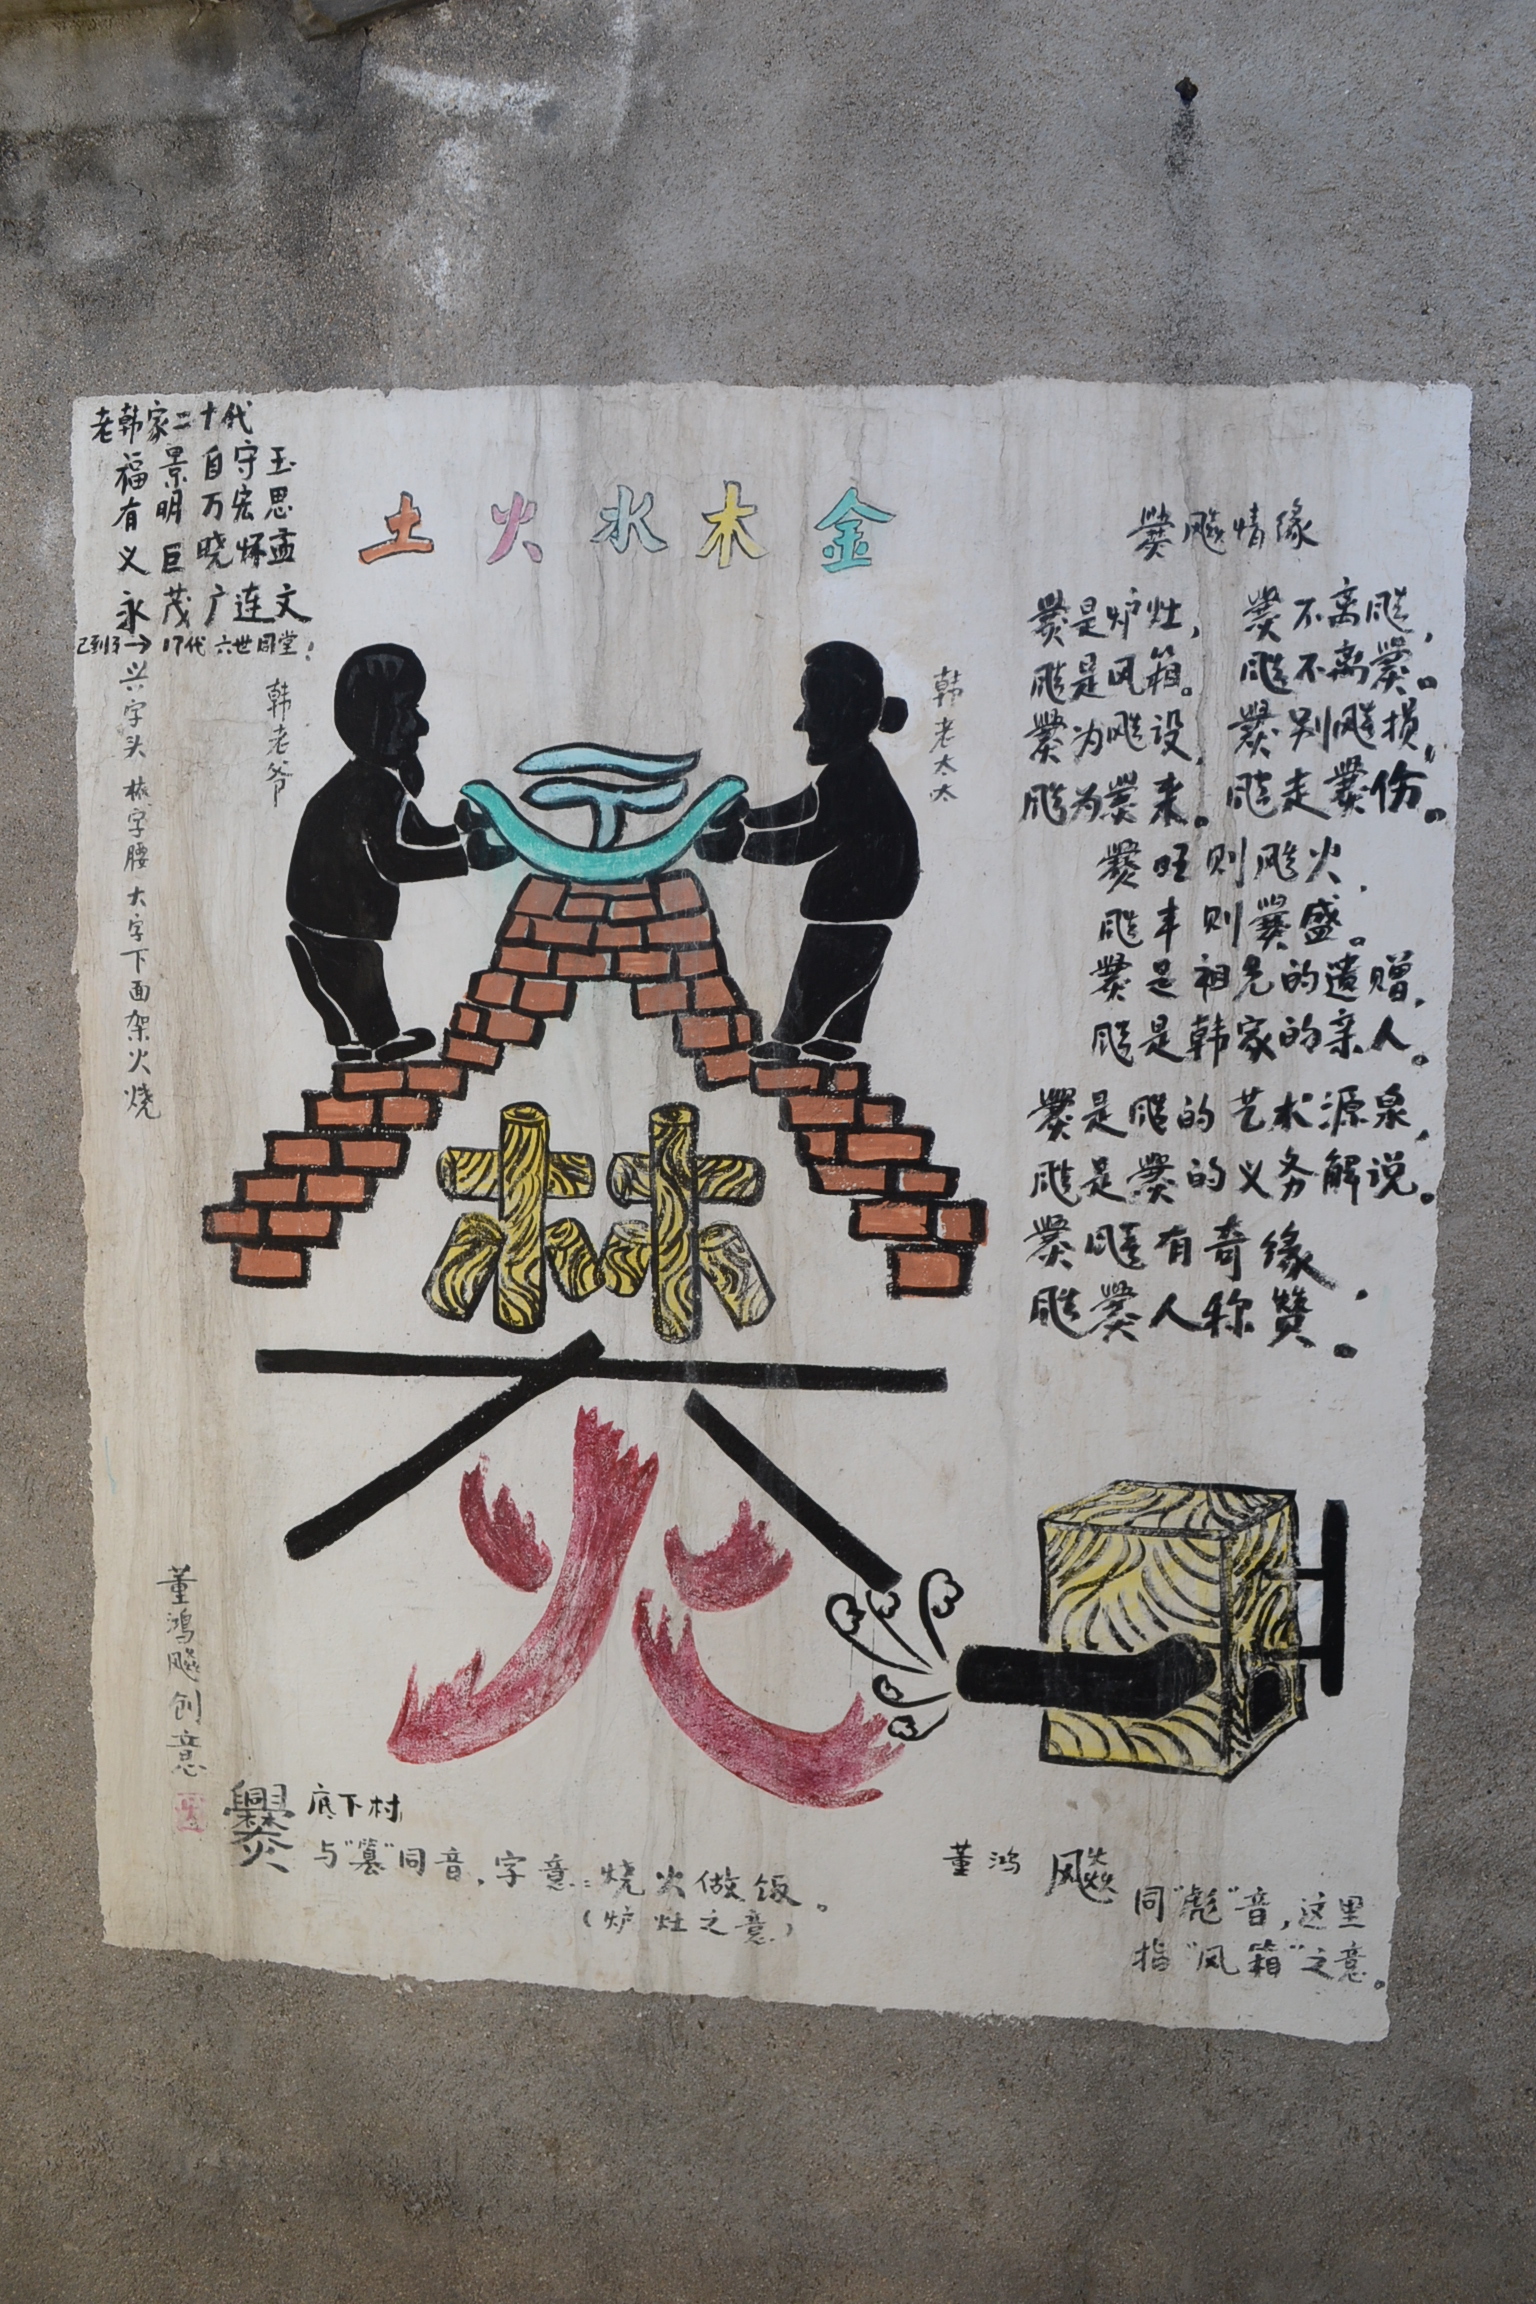 老韩家二十代
福景自守玉
有明万宏思
义巨晓怀孟
永茂广连文
已到了→17代六世同堂!
兴字头 林字腰 大字下面架火烧
韩老爷
土火水木金
韩老太太
爨飚情缘
爨是炉灶, 爨不离飚,
飚是风箱。 飚不离爨。
爨为飚设, 爨别飚损,
飚为爨来。 飚走爨伤。
爨旺则飚火,
飚丰则爨盛。
爨是祖先的遗赠,
飚是韩家的亲人。
爨是飚的艺术源泉,
飚是爨的义务解说。
爨飚有奇缘,
飚爨人称赞。
董鸿飚创意
爨底下村
与"篡"同音,字意:烧火做饭。
(炉灶之意)
董鸿飚
同"彪"音,这里
指"风箱"之意。